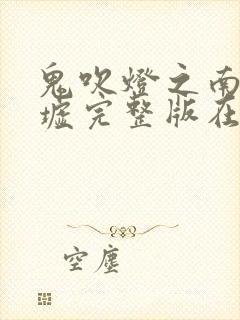 鬼吹燈之南
墟完整版在
空塵